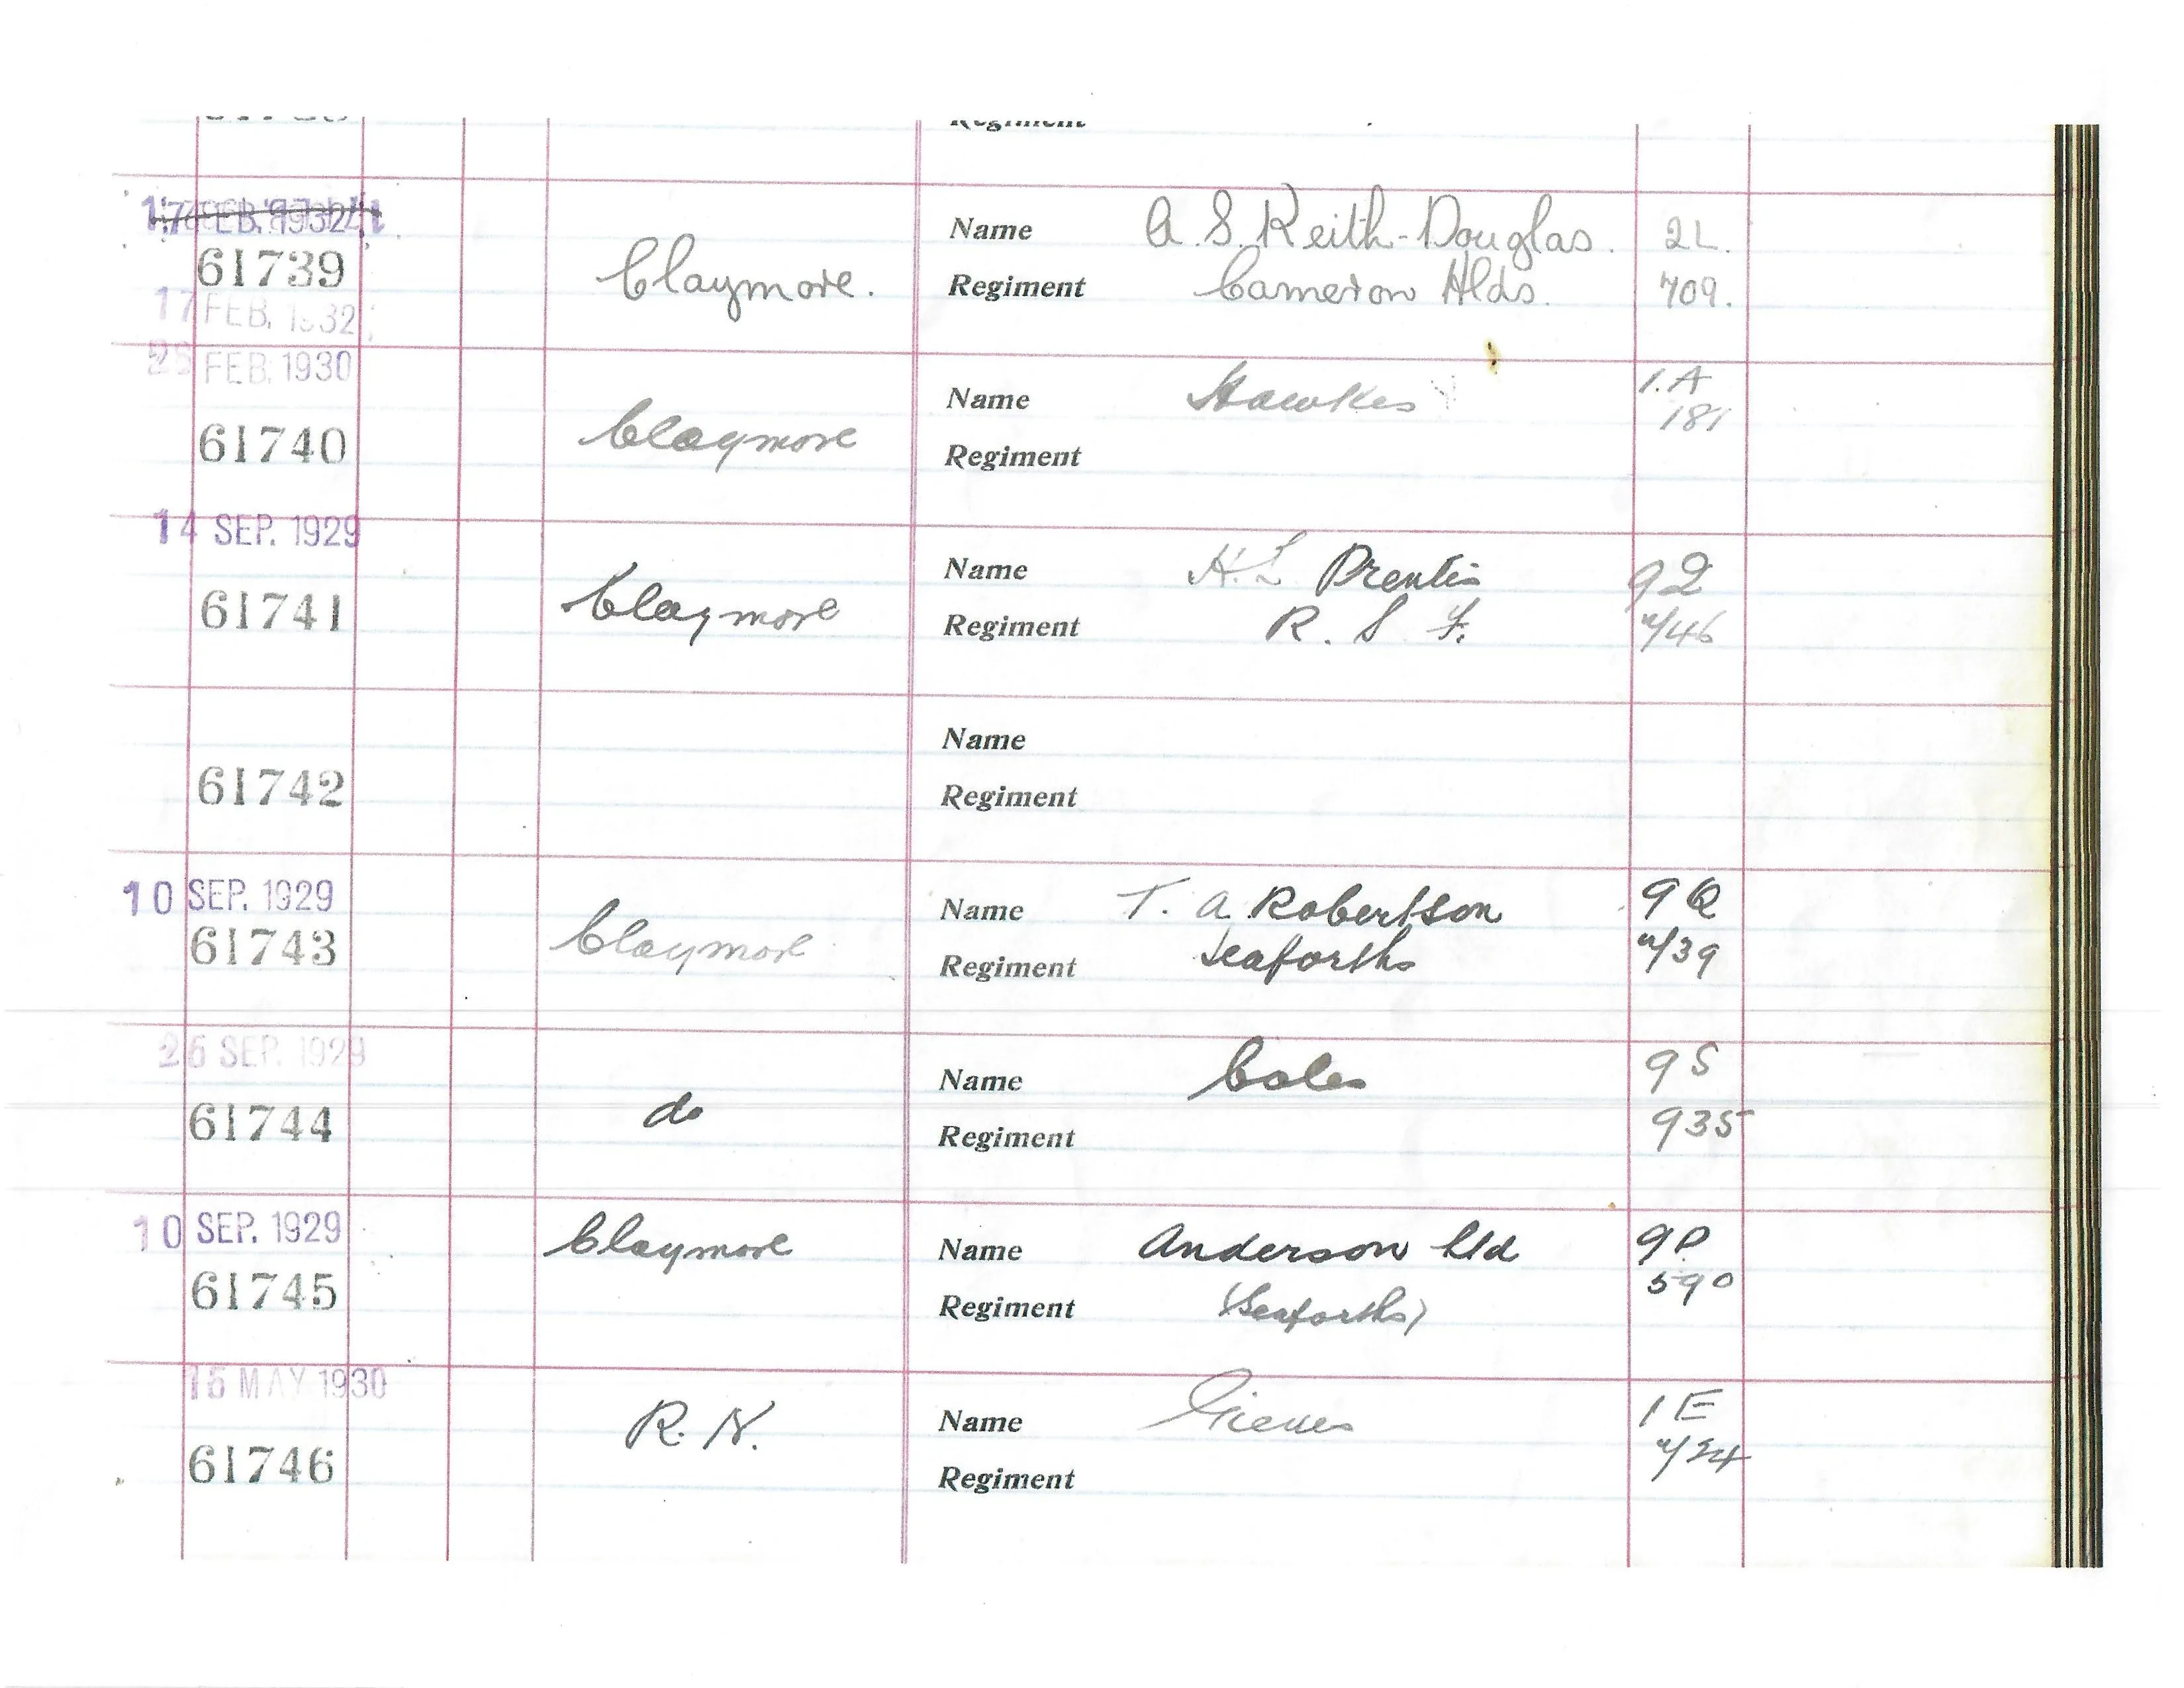 Regiment
17 FEB. 1932
61739 Claymore. Name A. S. Keith-Douglas. 2L.
Regiment Cameron Hlds. 709.
17 FEB. 1932
FEB. 1930
61740 Claymore Name Hawkes 1.A
181
Regiment
14 SEP. 1929
61741 Claymore Name H.L Prentis 9Q
Regiment R. S F. /46
61742 Name
Regiment
10 SEP. 1929
61743 Claymore Name T. A. Robertson 9Q
Regiment Seaforths /39
26 SEP. 1929
61744 do Name Coles 9S
Regiment 935
10 SEP. 1929
61745 Claymore Name Anderson Ltd 9P
590
Regiment (Seaforths)
15 MAY 1930
61746 R. N. Name Gieves 1E
/24
Regiment